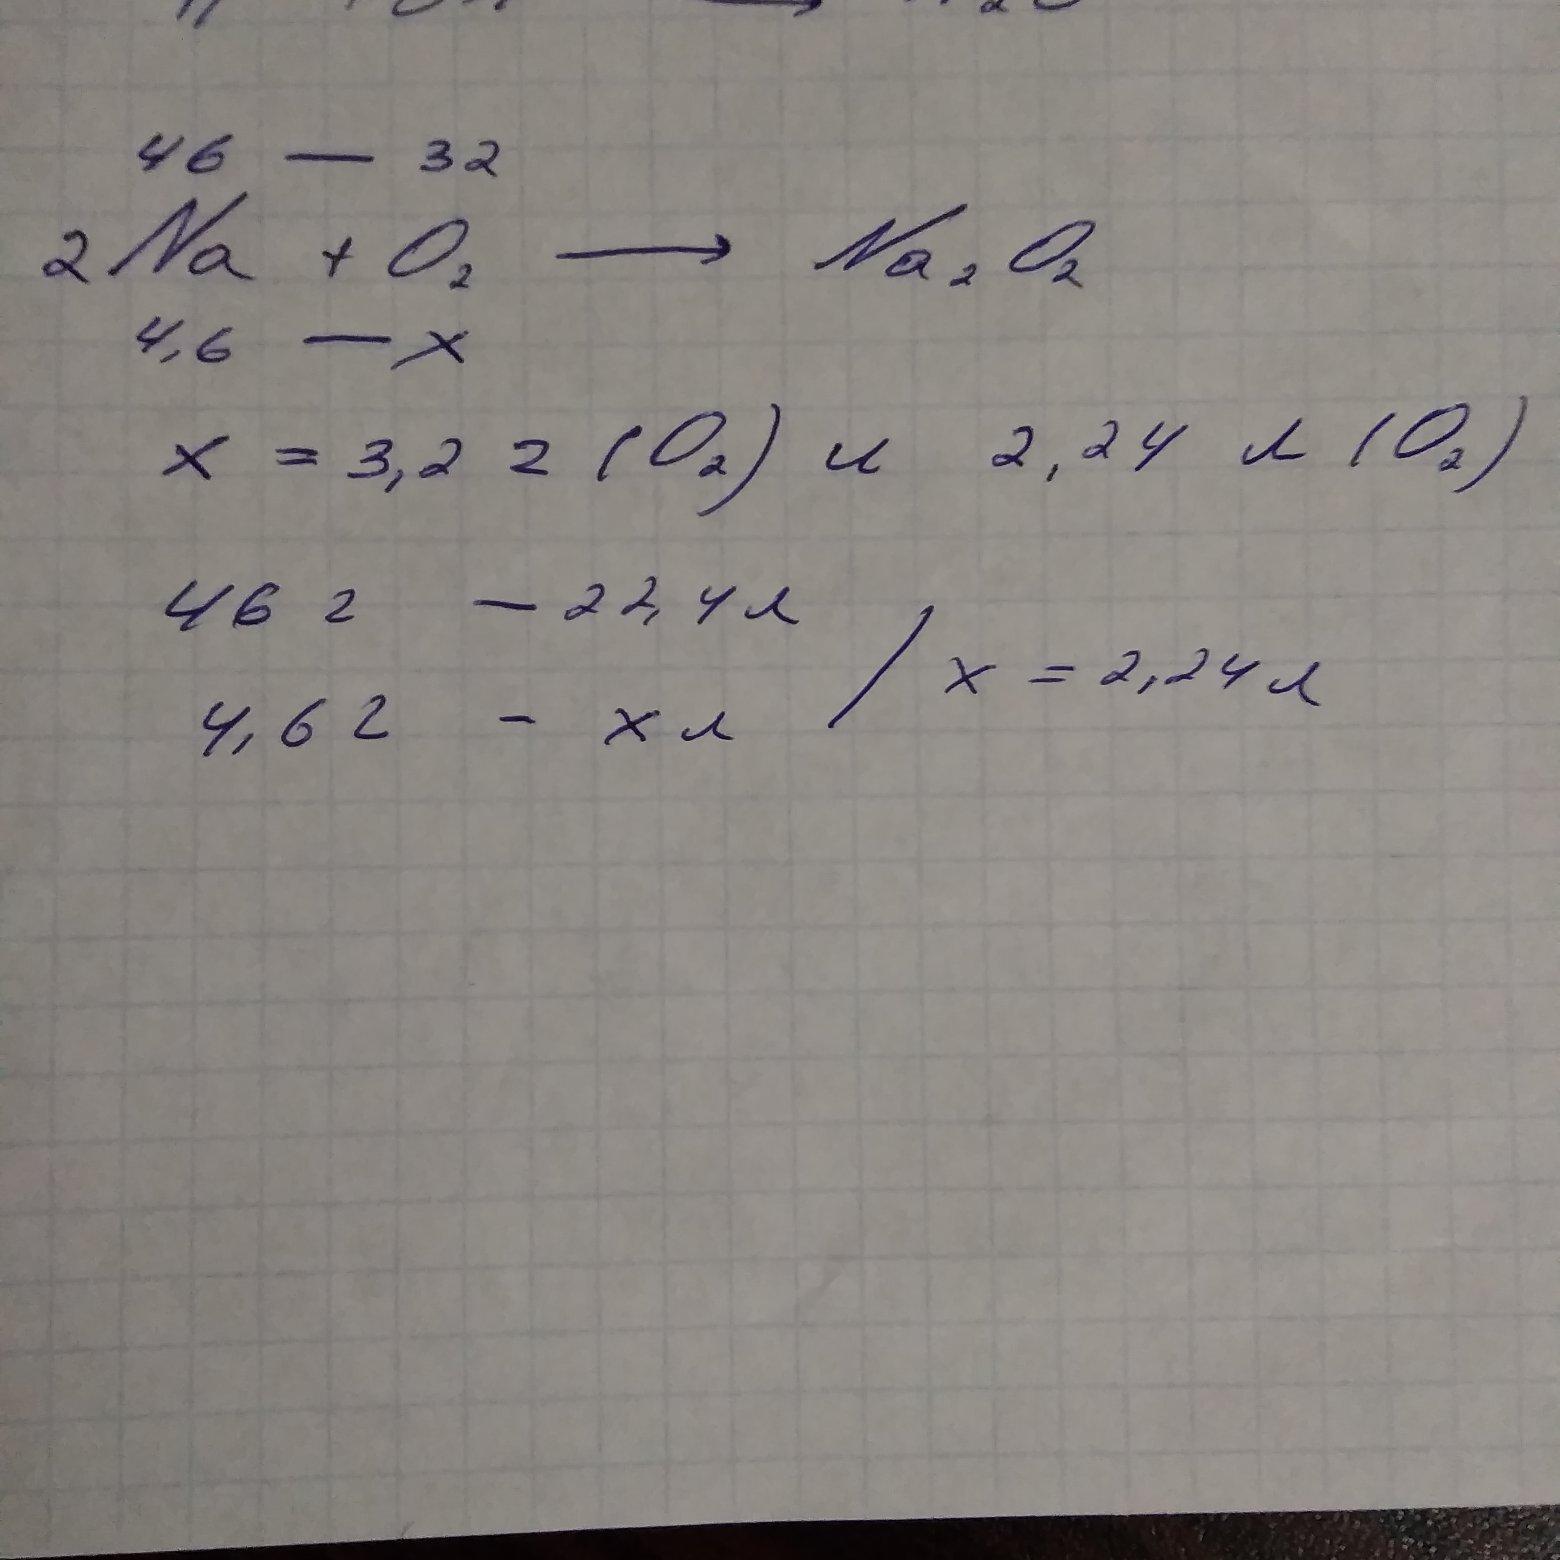 46 — 32
2Na + O₂ ⟶ Na₂O₂
4,6 — x
x = 3,2 г (O₂) и 2,24 л (O₂)
46 г – 22,4 л
4,6 г – x л / x = 2,24 л